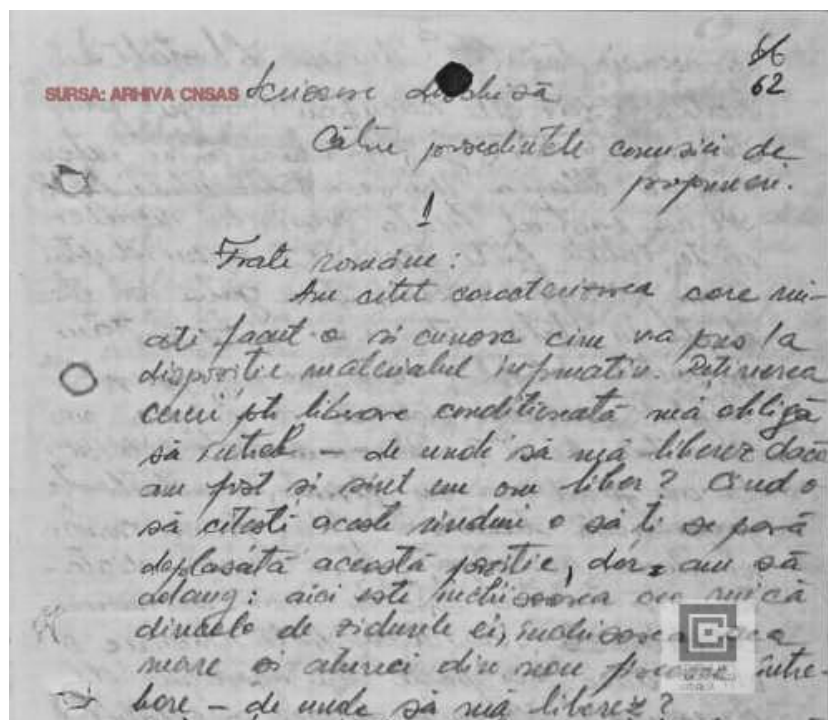 66
62
SURSA: ARHIVA CNSAS Scrisoare deschisă
Către, președintele comisiei de
propuneri.
1
Frate române:
Am citit caracterizarea care mi-
ati facut-o si cunosc cine v-a pus la
dispozitie materialul informativ. Retinerea
cereri ptr liberare conditionată mă obligă
să intreb – de unde să mă liberez dacă
am fost si sînt un om liber? Cînd o
să citesti aceste rînduri o să ti se pară
deplasată această pozitie, dar, am să
adaug: aici este inchisoarea cea mică
dincolo de zidurile ei, inchisoarea cea
mare si atunci din nou între-
bare – de unde să mă liberez?